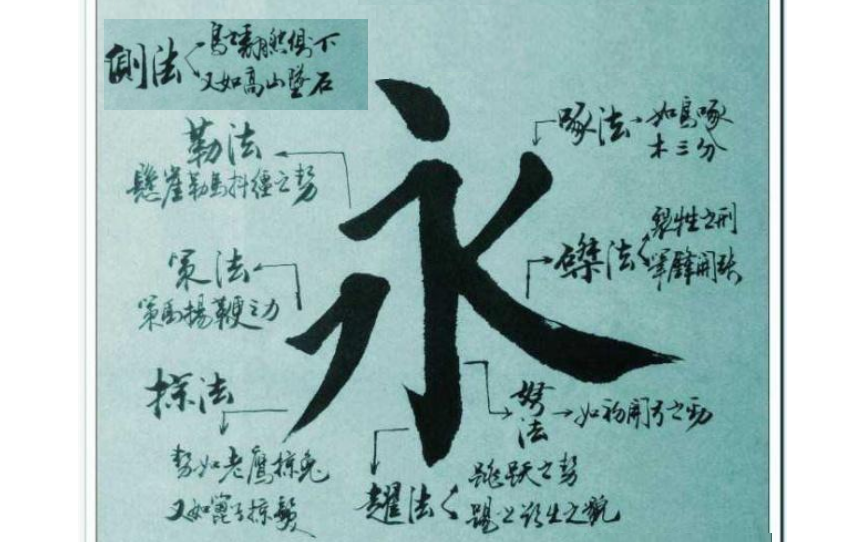 側法 鳥之翻然側下
又如高山墜石
永
啄法 如鳥啄
木三分
勒法
懸崖勒馬抖繮之势
磔法 裂牲之刑
筆鋒開張
策法
策馬揚鞭之力
掠法
势如老鷹掠兔
又如篦子掠鬢
努法 如初開弓之勁
趯法 跳跃之势
踢之
之貌